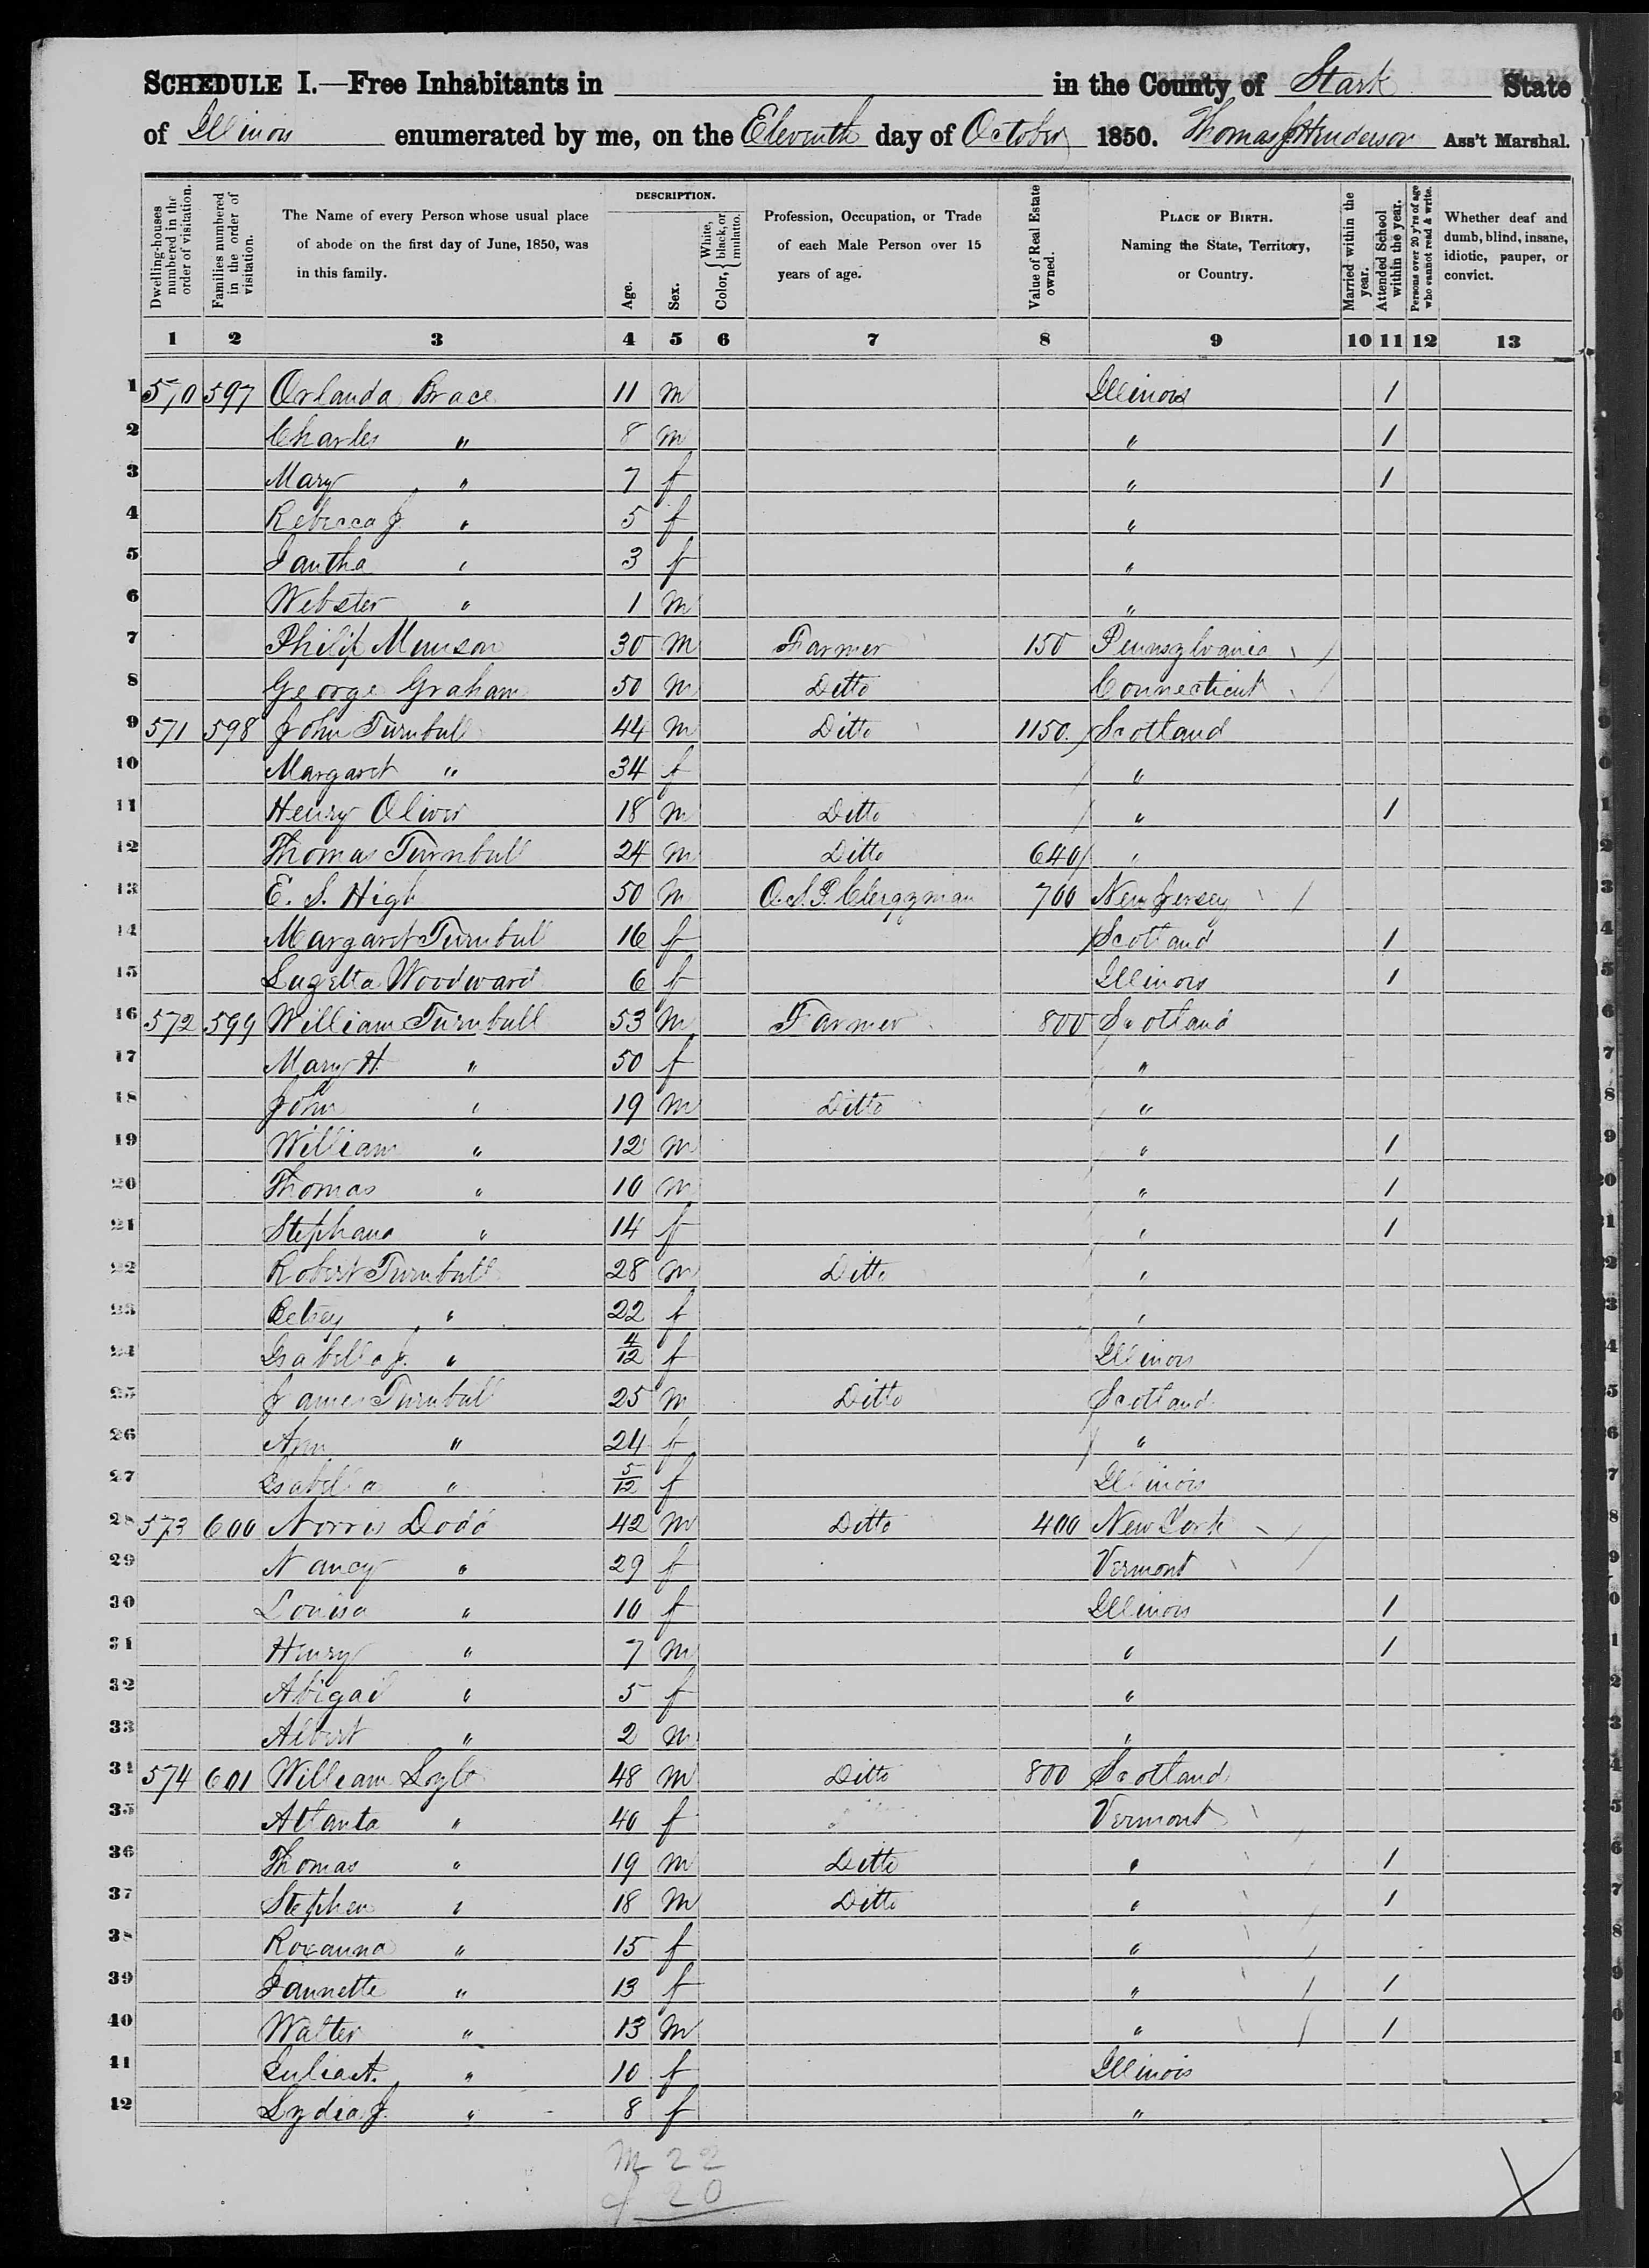 SCHEDULE I.—Free Inhabitants in in the County of Stark State
of Illinois enumerated by me, on the Eleventh day of October 1850. Thomas J Henderson Ass't Marshal.
Dwelling-houses numbered in the order of visitation.
Families numbered in the order of visitation.
The Name of every Person whose usual place of abode on the first day of June, 1850, was in this family.
DESCRIPTION.
Age.
Sex.
Color, { White, black, or mulatto.
Profession, Occupation, or Trade of each Male Person over 15 years of age.
Value of Real Estate owned.
PLACE OF BIRTH. Naming the State, Territory, or Country.
Married within the year.
Attended School within the year.
Persons over 20 y'rs of age who cannot read & write.
Whether deaf and dumb, blind, insane, idiotic, pauper, or convict.
1 2 3 4 5 6 7 8 9 10 11 12 13
1 570 597 Orlanda Brace 11 m Illinois 1
2 Charles " 8 m " 1
3 Mary " 7 f " 1
4 Rebecca J " 5 f "
5 Iantha " 3 f "
6 Webster " 1 m "
7 Philip Munson 30 m Farmer 150 Pennsylvania
8 George Graham 50 m Ditto Connecticut
9 571 598 John Turnbull 44 m Ditto 1150 Scotland
10 Margaret " 34 f "
11 Henry Oliver 18 m Ditto " 1
12 Thomas Turnbull 24 m Ditto 640 "
13 E. S. High 50 m O.S.P. Clergyman 700 New Jersey
14 Margaret Turnbull 16 f Scotland 1
15 Luzetta Woodward 6 f Illinois 1
16 572 599 William Turnbull 53 m Farmer 800 Scotland
17 Mary H. " 50 f "
18 John " 19 m Ditto "
19 William " 12 m " 1
20 Thomas " 10 m " 1
21 Stephana " 14 f " 1
22 Robert Turnbull 28 m Ditto "
23 Betsey " 22 f "
24 Isabella J. " 4/12 f Illinois
25 James Turnbull 25 m Ditto Scotland
26 Ann " 24 f "
27 Isabella " 5/12 f Illinois
28 573 600 Norris Dodd 42 m Ditto 400 New York
29 Nancy " 29 f Vermont
30 Louisa " 10 f Illinois 1
31 Henry " 7 m " 1
32 Abigail " 5 f "
33 Albert " 2 m "
34 574 601 William Lyle 48 m Ditto 800 Scotland
35 Atlanta " 40 f Vermont
36 Thomas " 19 m Ditto " 1
37 Stephen " 18 m Ditto " 1
38 Roxanna " 15 f "
39 Jannette " 13 f " 1
40 Walter " 13 m " 1
41 Julia A. " 10 f Illinois
42 Lydia J. " 8 f "
m 22
f 20